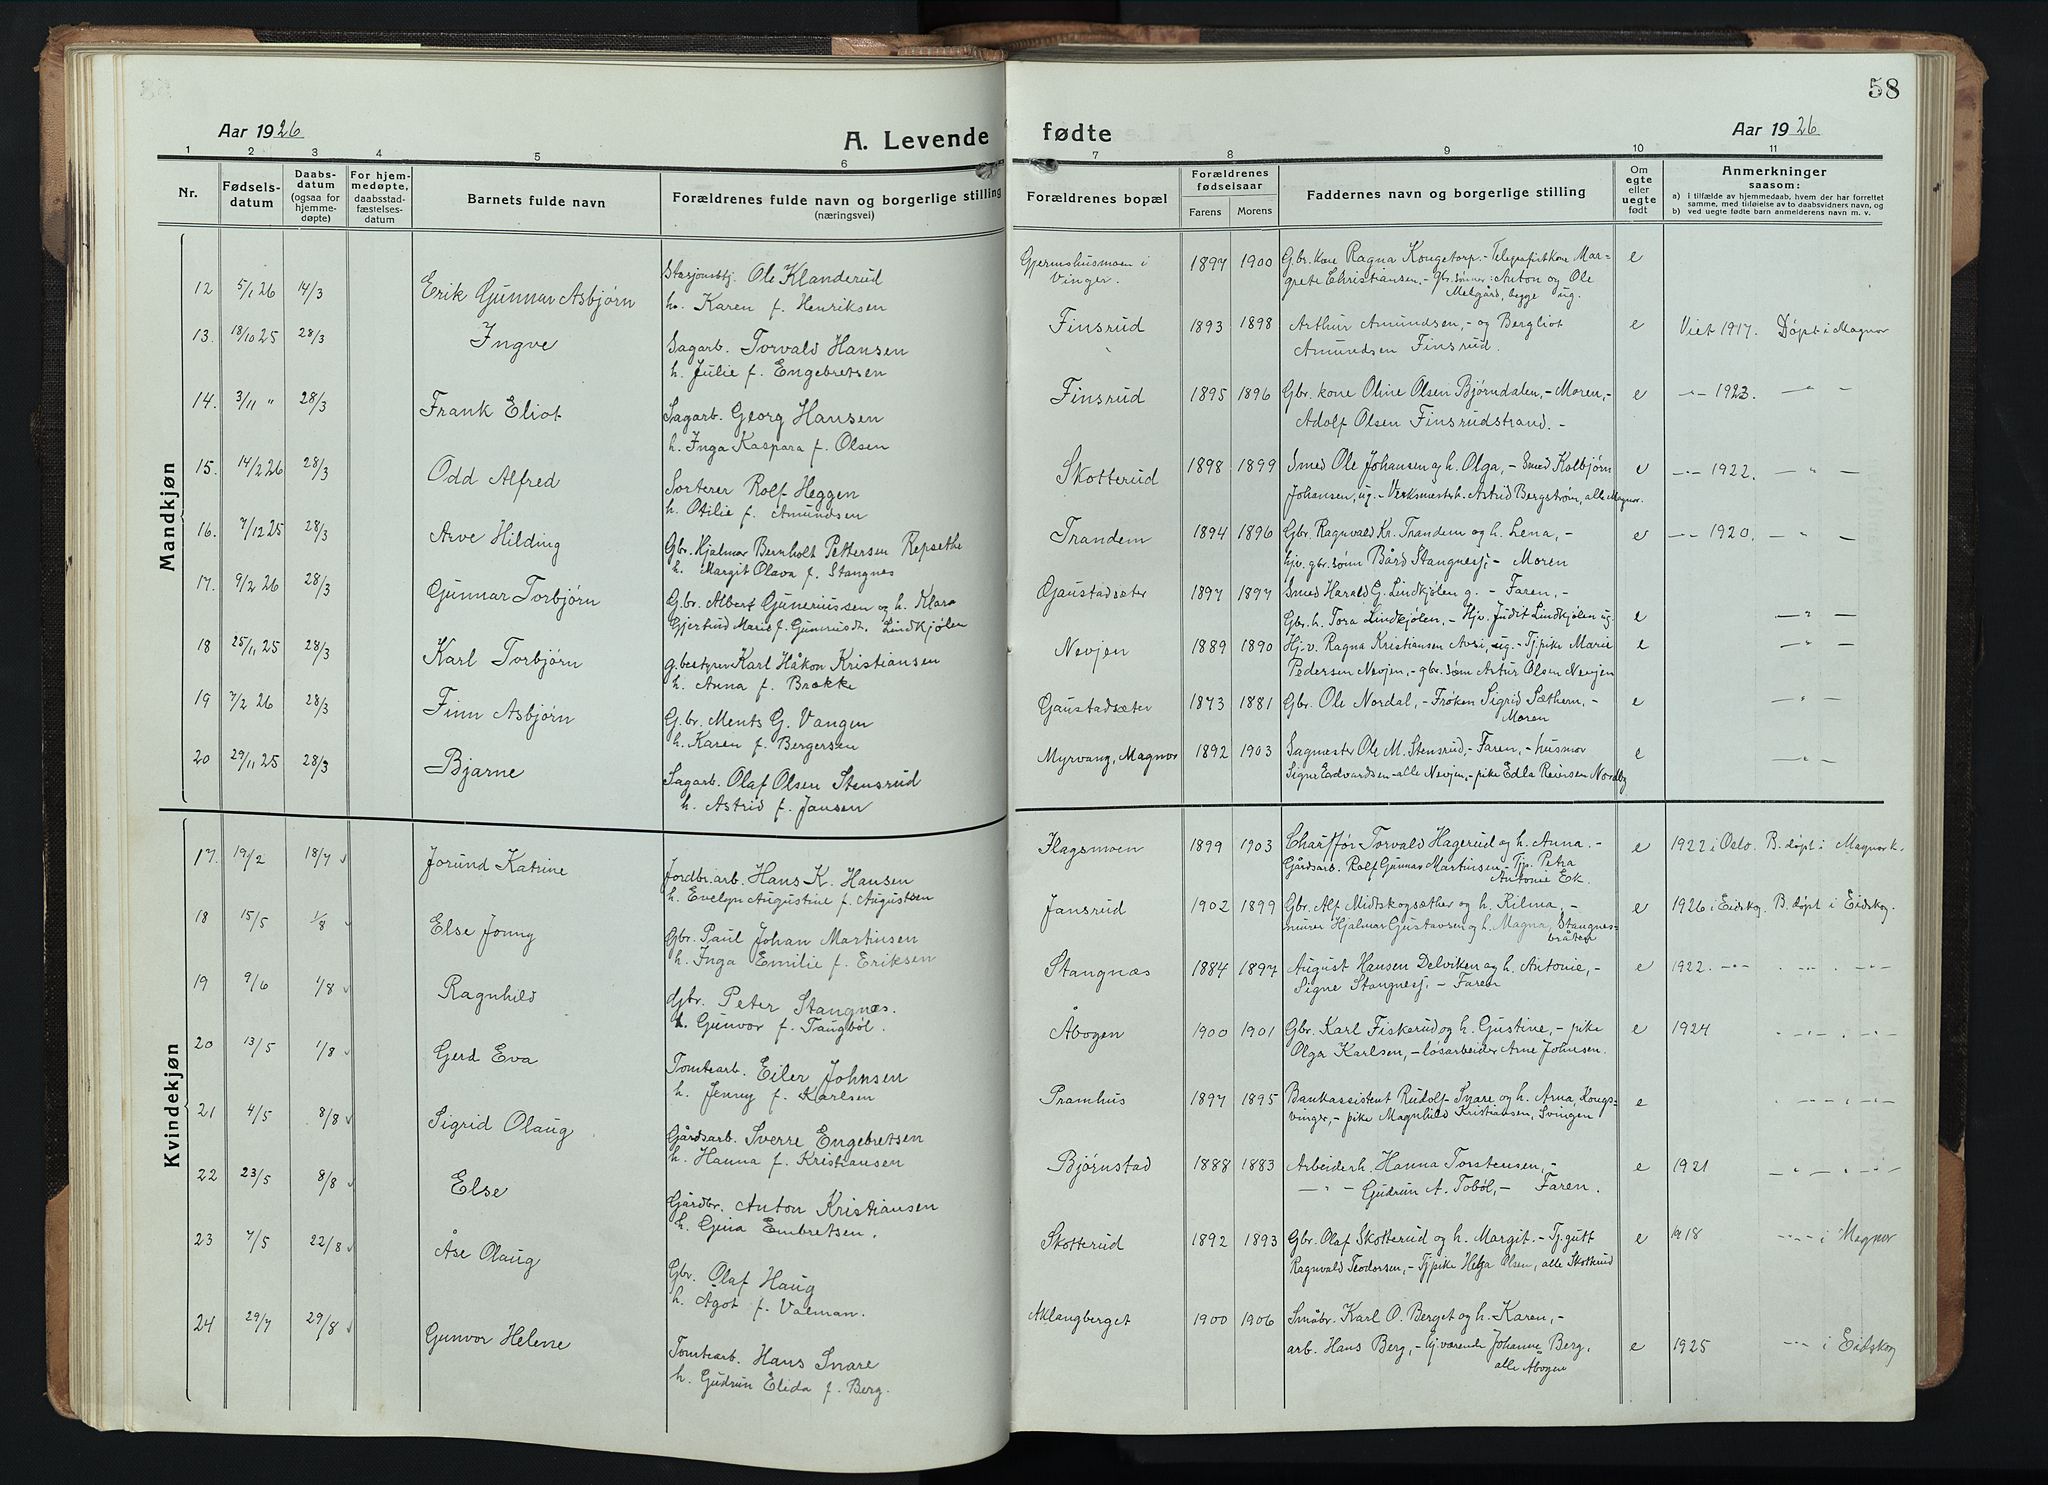 58
Aar 1926
A. Levende fødte
Aar 1926
1 2 3 4 5 6 7 8 9 10 11
Nr.
Fødsels-
datum
Daabs-
datum
(ogsaa for
hjemme-
døpte)
For hjem-
medøpte,
daabsstad-
fæstelses-
datum
Barnets fulde navn
Forældrenes fulde navn og borgerlige stilling
(næringsvei)
Forældrenes bopæl
Forældrenes
fødselsaar
Farens Morens
Faddernes navn og borgerlige stilling
Om
egte
eller
uegte
født
Anmerkninger
saasom:
a) i tilfælde av hjemmedaab, hvem der har forrettet
samme, med tilføielse av to daabsvidners navn, og
b) ved uegte fødte barn anmelderens navn m. v.
Mandkjøn
12 5/1 26 14/3 Erik Gunnar Asbjørn
Stasjonsbtj. Ole Klanderud
h. Karen f. Henriksen
Gjermshusmoen i
Vinger.
1897 1900
Gbr. kone Ragna Kongetorp.- Telegrafistkone Mar-
grete Christiansen.- Gbr. sønner: Anton og Ole
Melgård, begge ug.
e
13. 18/10 25 28/3 Ingve
Sagarb. Torvald Hansen
h. Julie f. Engebretsen
Finsrud 1893 1898
Arthur Amundsen,- og Bergliot
Amundsen Finsrud.
e Viet 1917. Døpt i Magnor
14. 3/11 " 28/3 Frank Eliot
Sagarb. Georg Hansen
h. Inga Kaspara f. Olsen
Finsrud 1895 1896
Gbr. kone Oline Olsen Bjørndalen,- Moren,-
Adolf Olsen Finsrudstrand.-
e -"- 1923. - " -
15. 14/2 26 28/3 Odd Alfred
Sorterer Rolf Heggen
h. Otilie f. Amundsen
Skotterud 1898 1899
Smed Ole Johansen og h. Olga,- Smed Kolbjørn
Johansen, ug.- Verksmesterh. Astrid Bergstrøm, alle Magnor.
e -"- 1922. - " -
16. 7/12 25 28/3 Arve Hilding
Gbr. Hjalmar Bernholt Pettersen Repsethe
h. Margit Olava f. Stangnes
Trandem 1894 1896
Gbr. Ragnvald Kr. Trandem og h. Lena,-
hjv. gbr. sønn Bård Stangnessj.- Moren
e -"- 1920. - " -
17. 9/2 26 28/3 Gunnar Torbjørn
Gbr. Albert Guneriussen og h. Klara
Gjertrud Marie f. Gunerusdt. Lindkjølen
Gaustadsæter 1897 1897
Smed Harald G. Lindkjølen g. - Faren,-
Gbr. h. Tora Lindkjølen,- Hjv. Judit Lindkjølen ug.
e - " -
18 25/11 25 28/3 Karl Torbjørn
g.bestyrer Karl Håkon Kristiansen
h. Anna f. Brække
Nevjen 1889 1890
Hj.v. Ragna Kristiansen Avri, ug.- Tj.pike Marie
Pedersen Nevjen,- gbr. søn Artur Olsen Nevjen
e - " -
19 7/2 26 28/3 Finn Asbjørn
G.br. Ments G. Vangen
h. Karen f. Bergersen
Gaustadsæter 1873 1881
Gbr. Ole Nordal,- Frøken Sigrid Sæthern,-
Moren
e - " -
20 29/11 25 28/3 Bjarne
Sagarb. Olaf Olsen Stensrud
h. Astrid f. Jansen
Myrvang, Magnor 1892 1903
Sagmester Ole M. Stensrud,- Faren,- husmor
Signe Edvardsen - alle Nevjen,- pike Edla Reiersen Nordby
e - " -
Kvindekjøn
17. 19/2 18/7 Jorund Katrine
Jordbr.arb. Hans K. Hansen
h. Evelyn Augustine f. Augustsen
Flagsmoen 1899 1903
Chauffør Torvald Hagerud og h. Anna.-
Gårdsarb. Rolf Gunnar Martinsen - Tjp. Petra
Antonie Ek.
e 1922 i Oslo. B. døpt i Magnor k.
18 15/5 1/8 Else Jonny
Gbr. Paul Johan Martinsen
h. Inga Emilie f. Eriksen
Jansrud 1902 1899
Gbr. Alf Midtskogsæther og h. Kilma.-
murer Hjalmar Gustavsen og h. Magna, Stangnes-
bråten
e 1926 i Eidskog. B. døpt i Eidskog.
19 9/6 1/8 Ragnhild
Gbr. Peter Stangnæs.
h. Gunvor f. Taugbøl.
Stangnæs 1884 1897
August Hansen Delviken og h. Antonie,-
Signe Stangnessj.- Faren
e 1922. -"- " -"-
20 13/5 1/8 Gerd Eva
Tomtearb. Eiler Johnsen
h. Jenny f. Karlsen
Åbogen 1900 1901
Gbr. Karl Fiskerud og h. Gustine,- pike
Olga Karlsen,- løsarbeider Arne Johnsen.
e 1924 " -"- " -"-
21 4/5 8/8 Sigrid Olaug
Gårdsarb. Sverre Engebretsen
h. Hanna f. Kristiansen
Pramhus 1897 1895
Bankassistent Rudolf Snare og h. Arna, Kongs-
vinger,- pike Magnhild Kristiansen, Svingen
e " -"- " -"-
22 23/5 8/8 Else
Gårdbr. Anton Kristiansen
h. Gina Embretsen.
Bjørnstad 1888 1883
Arbeiderh. Hanna Torstensen,-
-"- Gudrun A. Tobøl,- Faren.
e 1921 " -"- " -"-
23 7/5 22/8 Åse Olaug
Gbr. Olaf Haug
h. Ågot f. Valman.
Skotterud 1892 1893
Gbr. Olaf Skotterud og h. Margit.- Tj.gutt
Ragnvald Teodorsen,- Tjpike Helga Olsen, alle Skotterud
e 1918 -"- i Magnor
24 29/7 29/8 Gunvor Helene
Tomtearb. Hans Snare
h. Gudrun Elida f. Berg.
Aklangberget 1900 1906
Småbr. Karl O. Berget og h. Karen,-
arb. Hans Berg,- hj.værende Johanne Berg,
alle Åbogen
e 1925 -"- i Eidskog